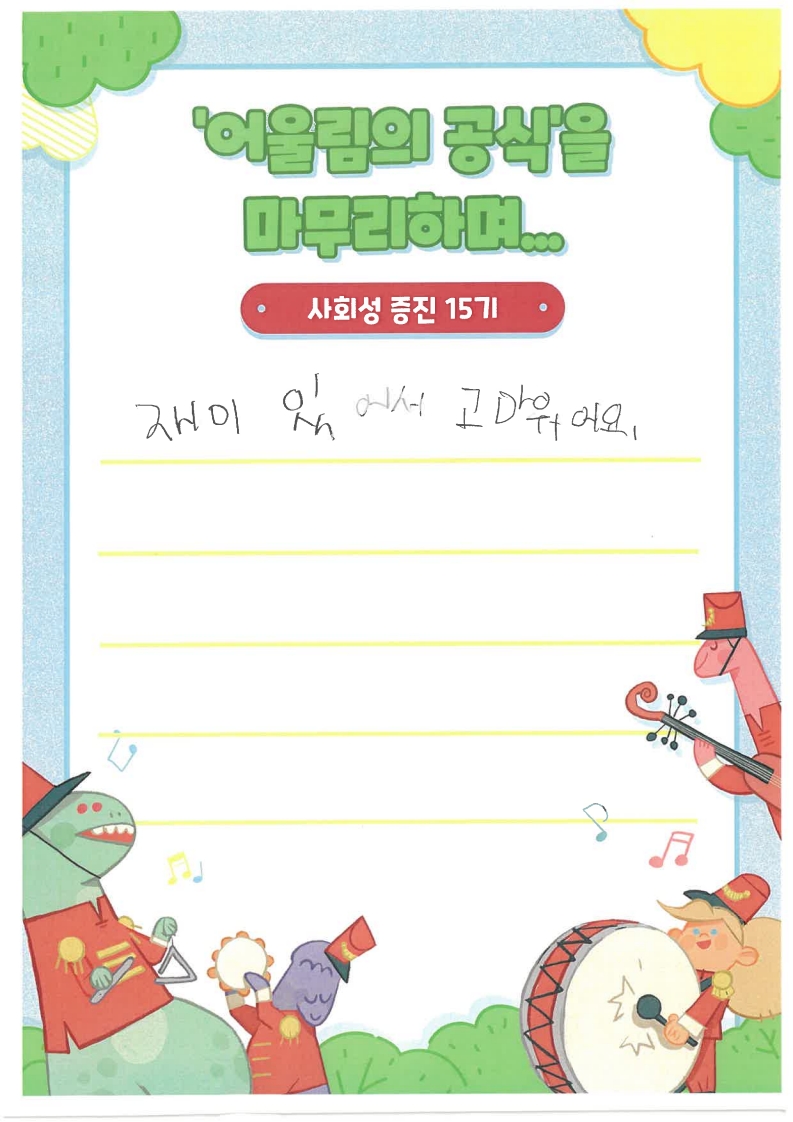 '어울림의 공식'을
마무리하며...
사회성 증진 15기
재미 있 어서 고마워 어요.